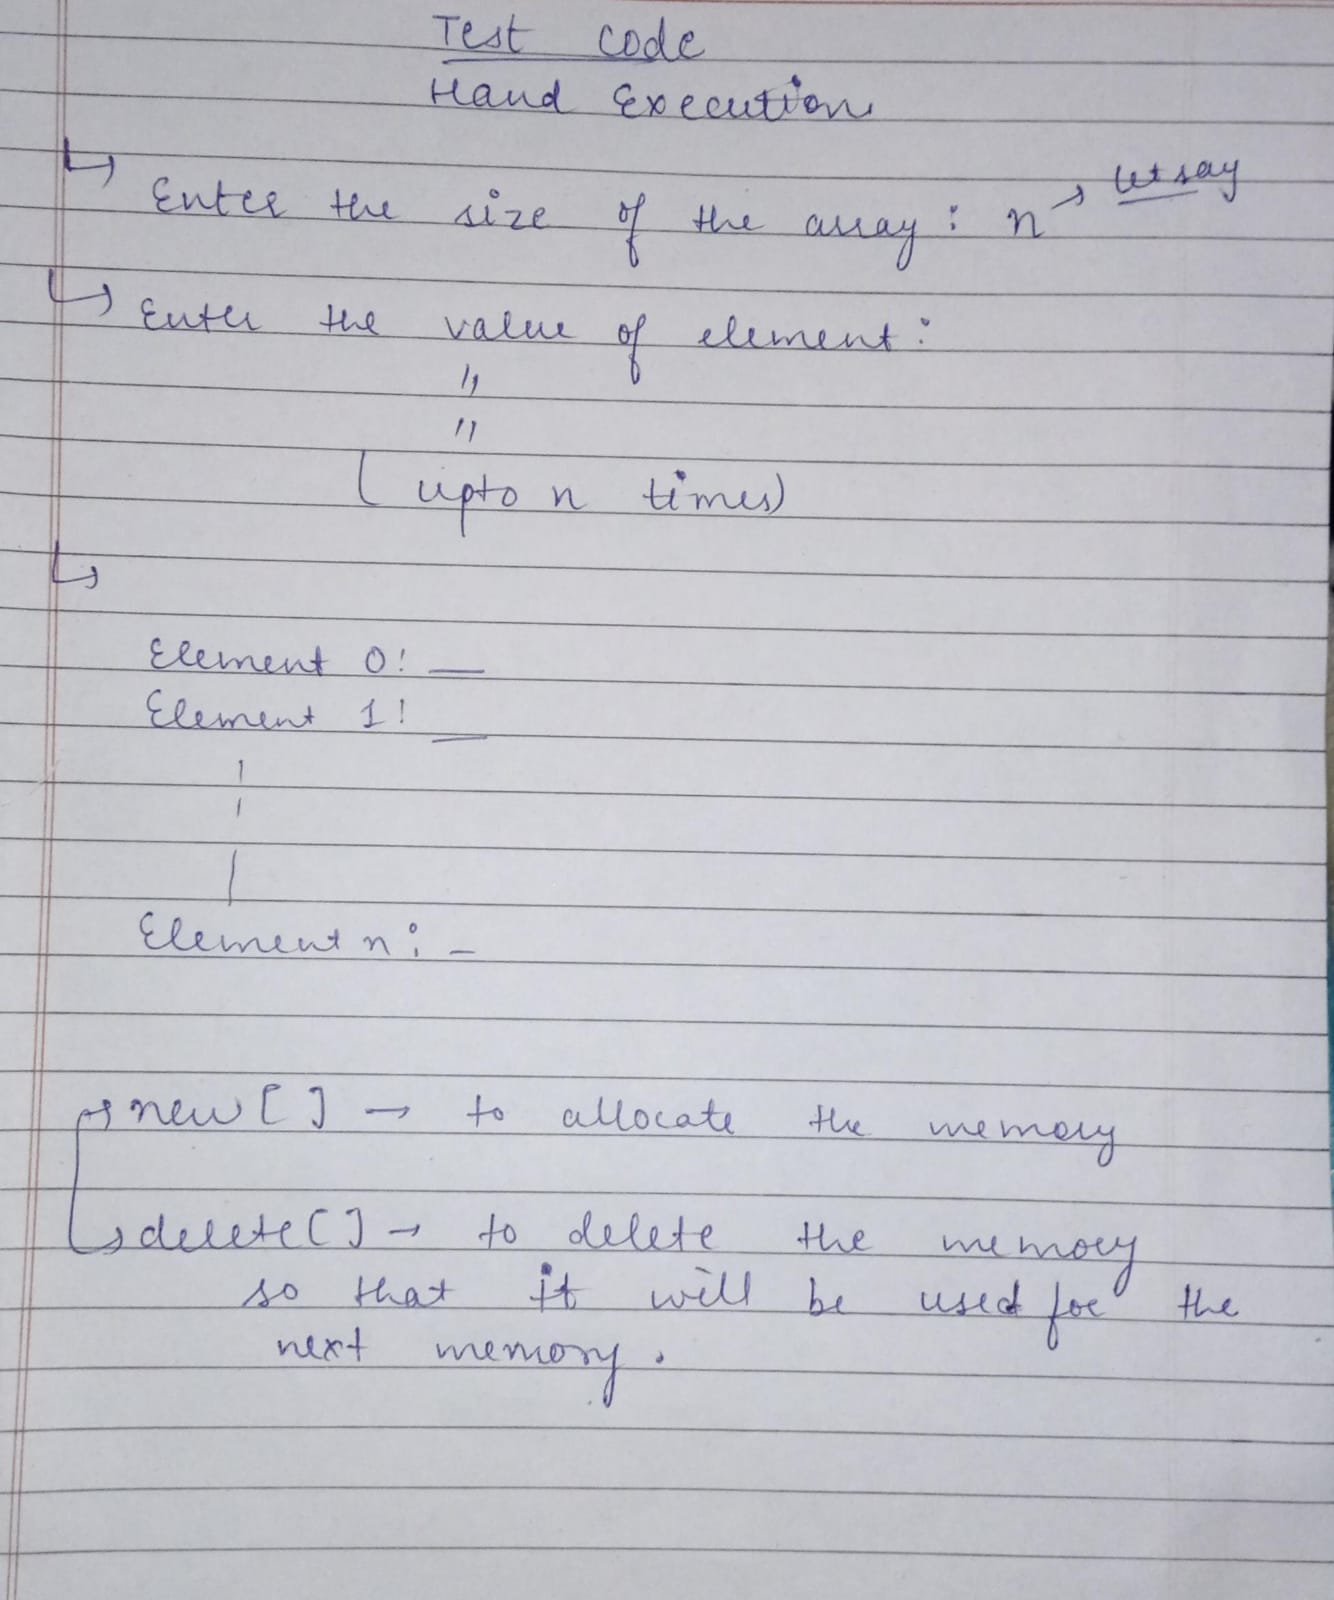 Test code
Hand Execution
↳ Enter the size of the array : n → let say
↳ Enter the value of element :
"
"
( upto n times)
↳
Element 0: __
Element 1: __
|
|
|
Element n: _
→ new [ ] → to allocate the memory
↳ delete [ ] → to delete the memory
so that it will be used for the
next memory.